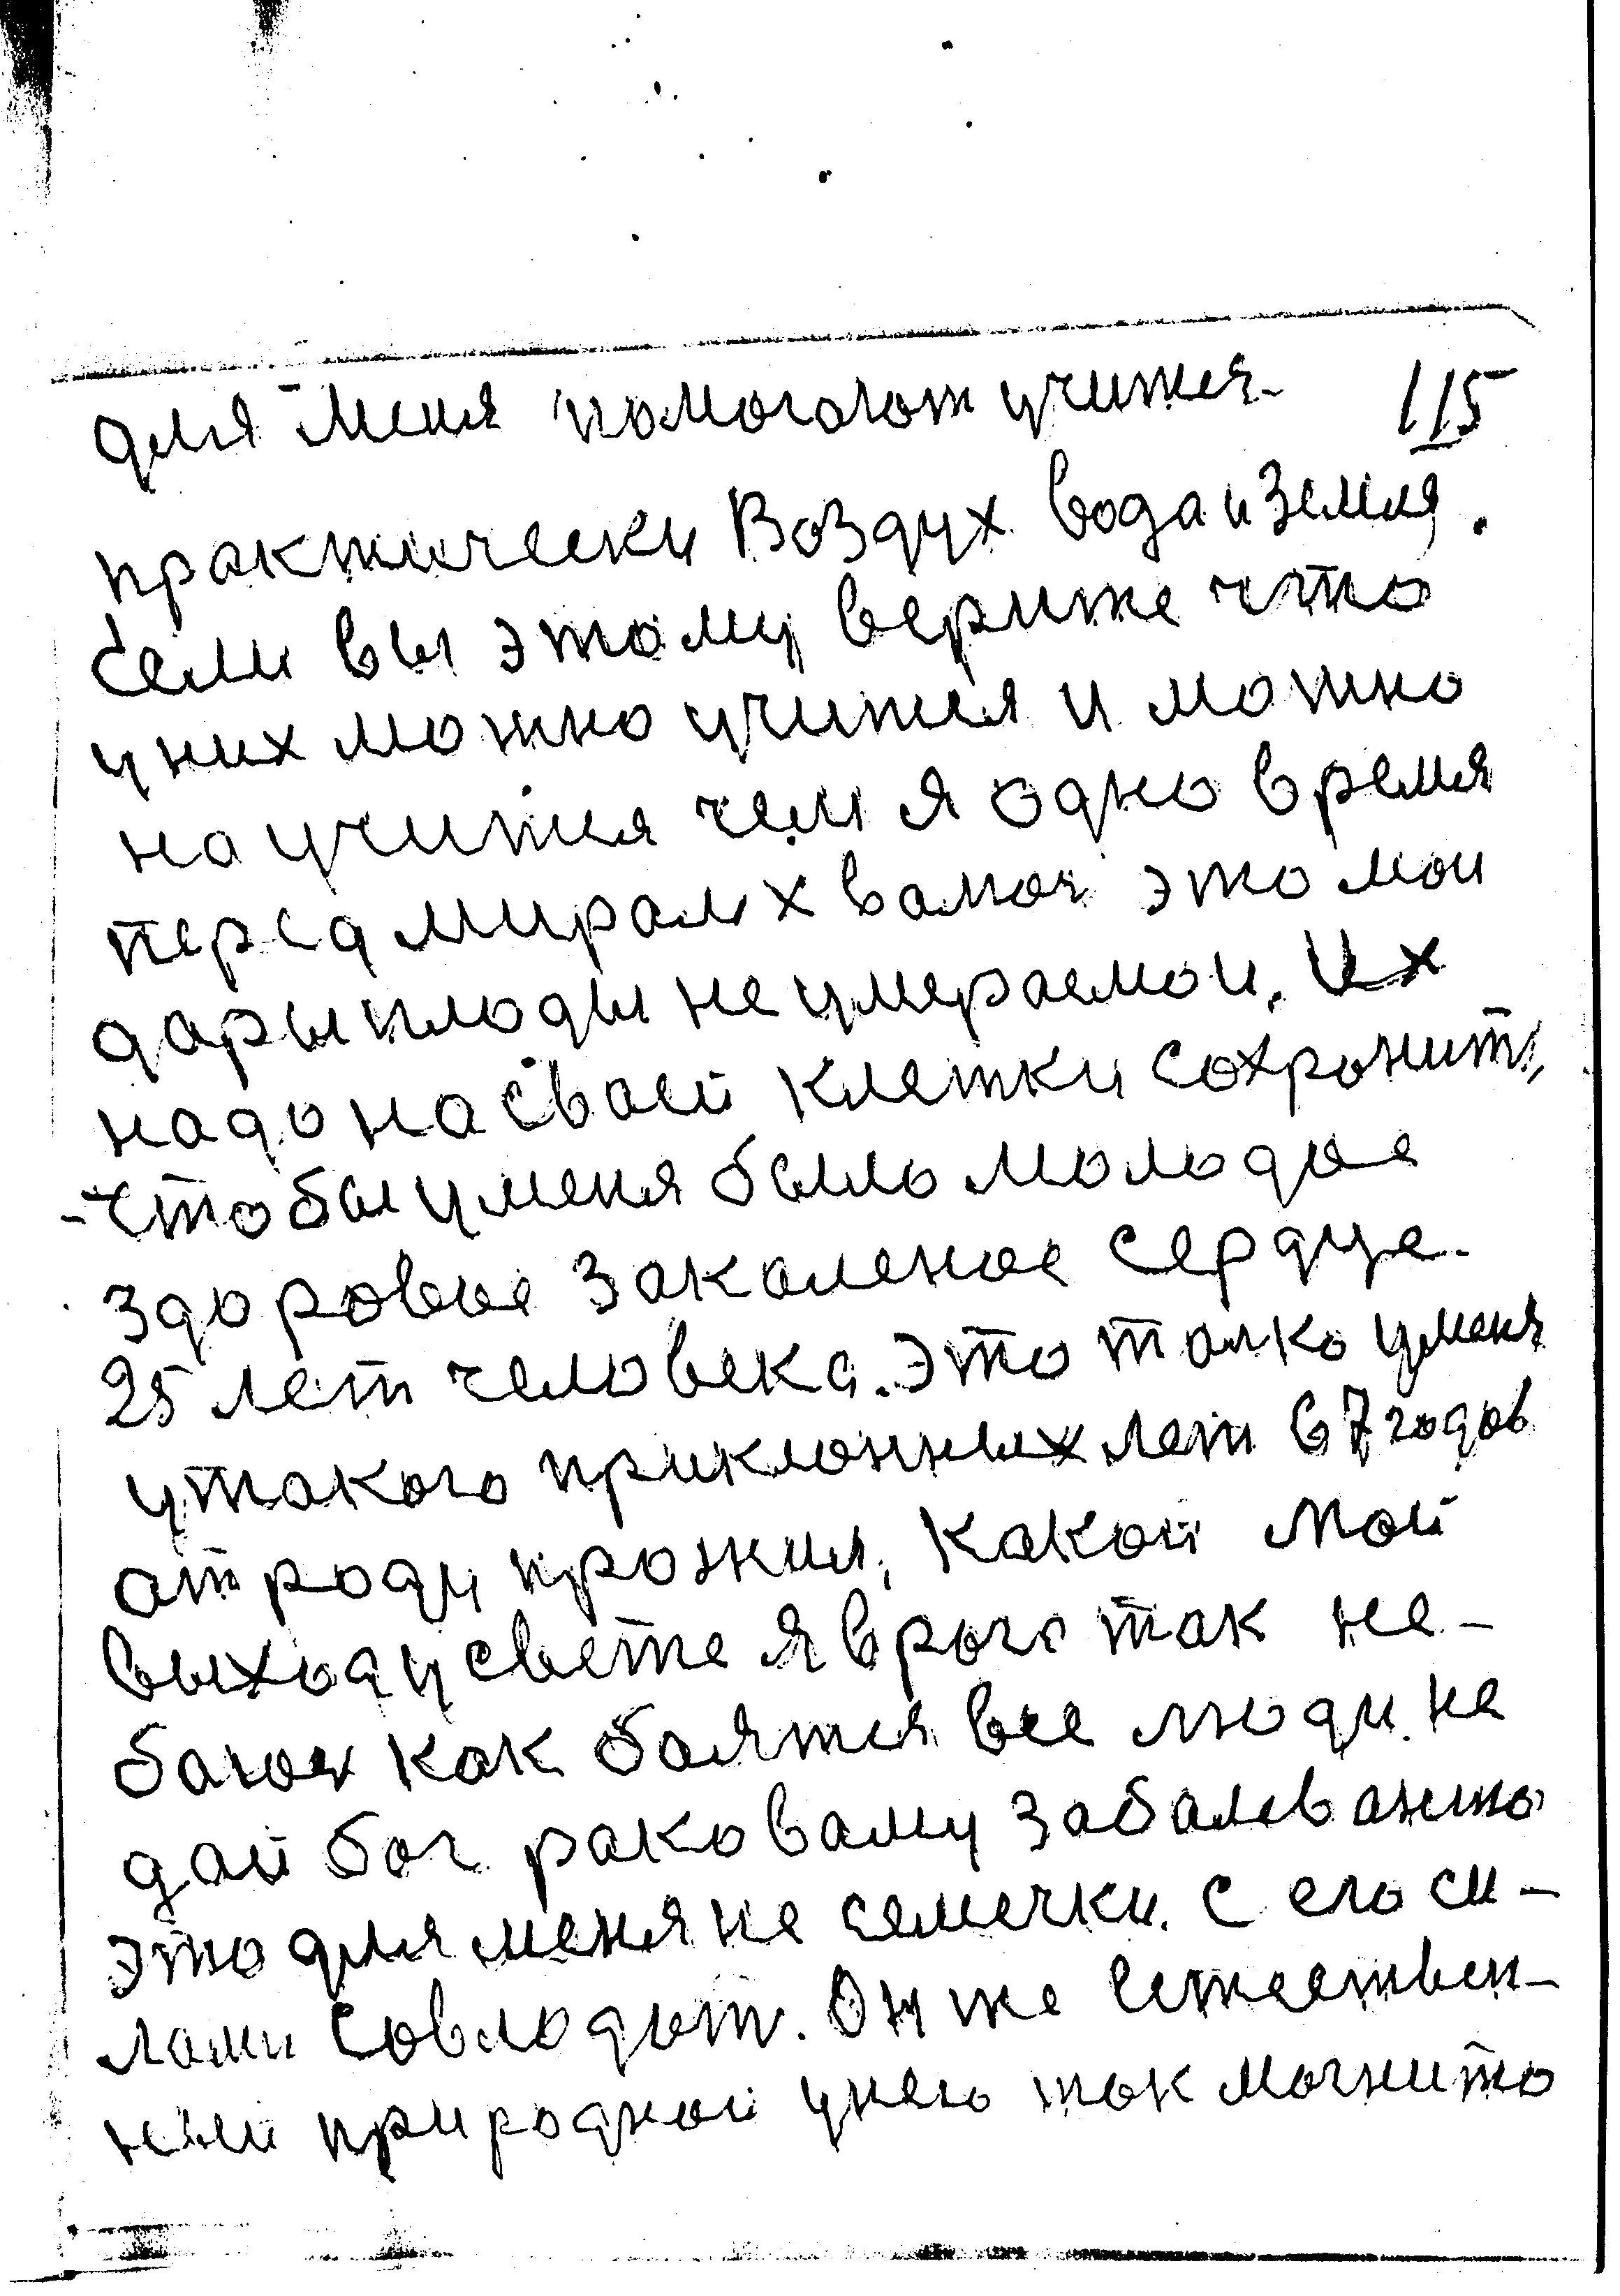 для меня помогают учится 115
практически Воздух вода и Земля.
Если вы этому верите что
у них можно учится и можно
научится чем я одно время
перед мирам хвалюсь это мои
дары плоды неумераемои. Их
надо на своей клетки сохронить,
-чтобы у меня было молодое
здоровое закаленое сердце
25 лет человека. Это толко у меня
у такого приклонных лет 67 годов
от роду прожил, какой мой
выход у свете я врага так не-
баюсь как боятся все люди. не
дай бог раковаму забалеванию
это для меня не семечки. с его си-
лами совлодать. Он же естествен-
ный природной у него ток магнито